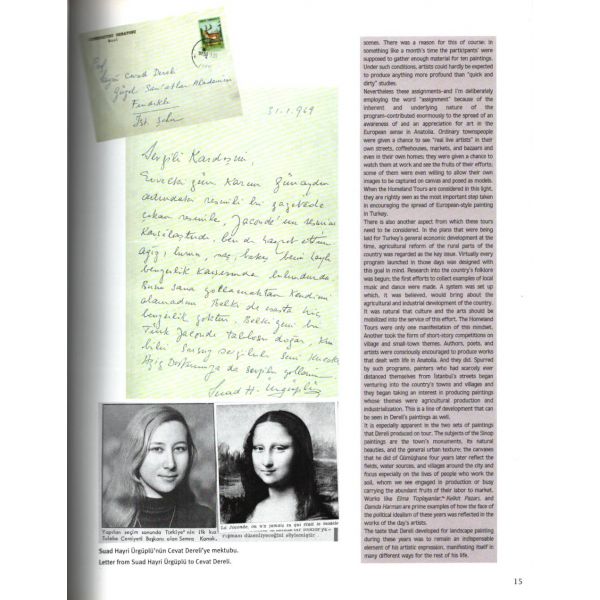 CUMHURİYET SENATOSU
Prof.
Cevad Dereli
Güzel San'atlar Akademisi
Fındıklı
İstanbul
31.1.969
Sevgili Kardeşim,
Evvelki gün Karım Günaydın
adındaki resimli bir gazetede
çıkan resimle, Jaconde'un resmini
karşılaştırdı, ben de hayret ettim
Ağız, burun, saç, bakış beni böyle
benzerlik karşısında bulundurdu
Bunu sana yollamaktan kendimi
alamadım Belki de esasta hiç
benzerlik yoktur. Belki yeni bir
Türk Jaconde tablosu doğar. Kim
bilir Sonsuz sevgilerle seni kucaklar
Suad H. Ürgüplü
Yapılan seçim sonunda Türkiye'nin ilk kız
Talebe Cemiyeti Başkanı olan Semra
La Joconde,
rışmanı düzenliyeceğini söylemiştir
Suad Hayri Ürgüplü'nün Cevat Dereli'ye mektubu.
Letter from Suad Hayri Ürgüplü to Cevat Dereli.
scenes. There was a reason for this of course. In
something like a month's time the participants were
supposed to gather enough material for ten paintings.
Under such conditions, artists could hardly be expected
to produce anything more profound than "quick and
dirty" studies.
Nevertheless these assignments–and I'm deliberately
employing the word "assignment" because of the
inherent and underlying nature of the
program–contributed enormously to the spread of an
awareness of and an appreciation for art in the
European sense in Anatolia. Ordinary townspeople
were given a chance to see "real live artists" in their
own streets, coffeehouses, markets, and bazaars and
even in their own homes; they were given a chance to
watch them at work and see the fruits of their efforts;
some of them were even willing to allow their own
images to be captured on canvas and posed as models.
When the Homeland Tours are considered in this light,
they are rightly seen as the most important step taken
in encouraging the spread of European-style painting
in Turkey.
There is also another aspect from which these tours
need to be considered. In the plans that were being
laid for Turkey's general economic development at the
time, agricultural reform of the rural parts of the
country was regarded as the key issue. Virtually every
program launched in those days was designed with
this goal in mind. Research into the country's folklore
was begun; the first efforts to collect examples of local
music and dance were made. A system was set up
which, it was believed, would bring about the
agricultural and industrial development of the country.
It was natural that culture and the arts should be
mobilized into the service of this effort. The Homeland
Tours were only one manifestation of this mindset.
Another took the form of short-story competitions on
village and small-town themes. Authors, poets, and
artists were consciously encouraged to produce works
that dealt with life in Anatolia. And they did. Spurred
by such programs, painters who had scarcely ever
distanced themselves from İstanbul's streets began
venturing into the country's towns and villages and
they began taking an interest in producing paintings
whose themes were agricultural production and
industrialization. This is a line of development that can
be seen in Dereli's paintings as well.
It is especially apparent in the two sets of paintings
that Dereli produced on tour. The subjects of the Sinop
paintings are the town's monuments, its natural
beauties, and the general urban texture; the canvases
that he did of Gümüşhane four years later reflect the
fields, water sources, and villages around the city and
focus especially on the lives of people who work the
soil, whom we see engaged in production or busy
carrying the abundant fruits of their labor to market.
Works like Elma Toplayanlar, Kelkit Pazarı, and
Damda Harman are prime examples of how the face of
the political idealism of these years was reflected in the
works of the day's artists.
The taste that Dereli developed for landscape painting
during these years was to remain an indispensable
element of his artistic expression, manifesting itself in
many different ways for the rest of his life.
15